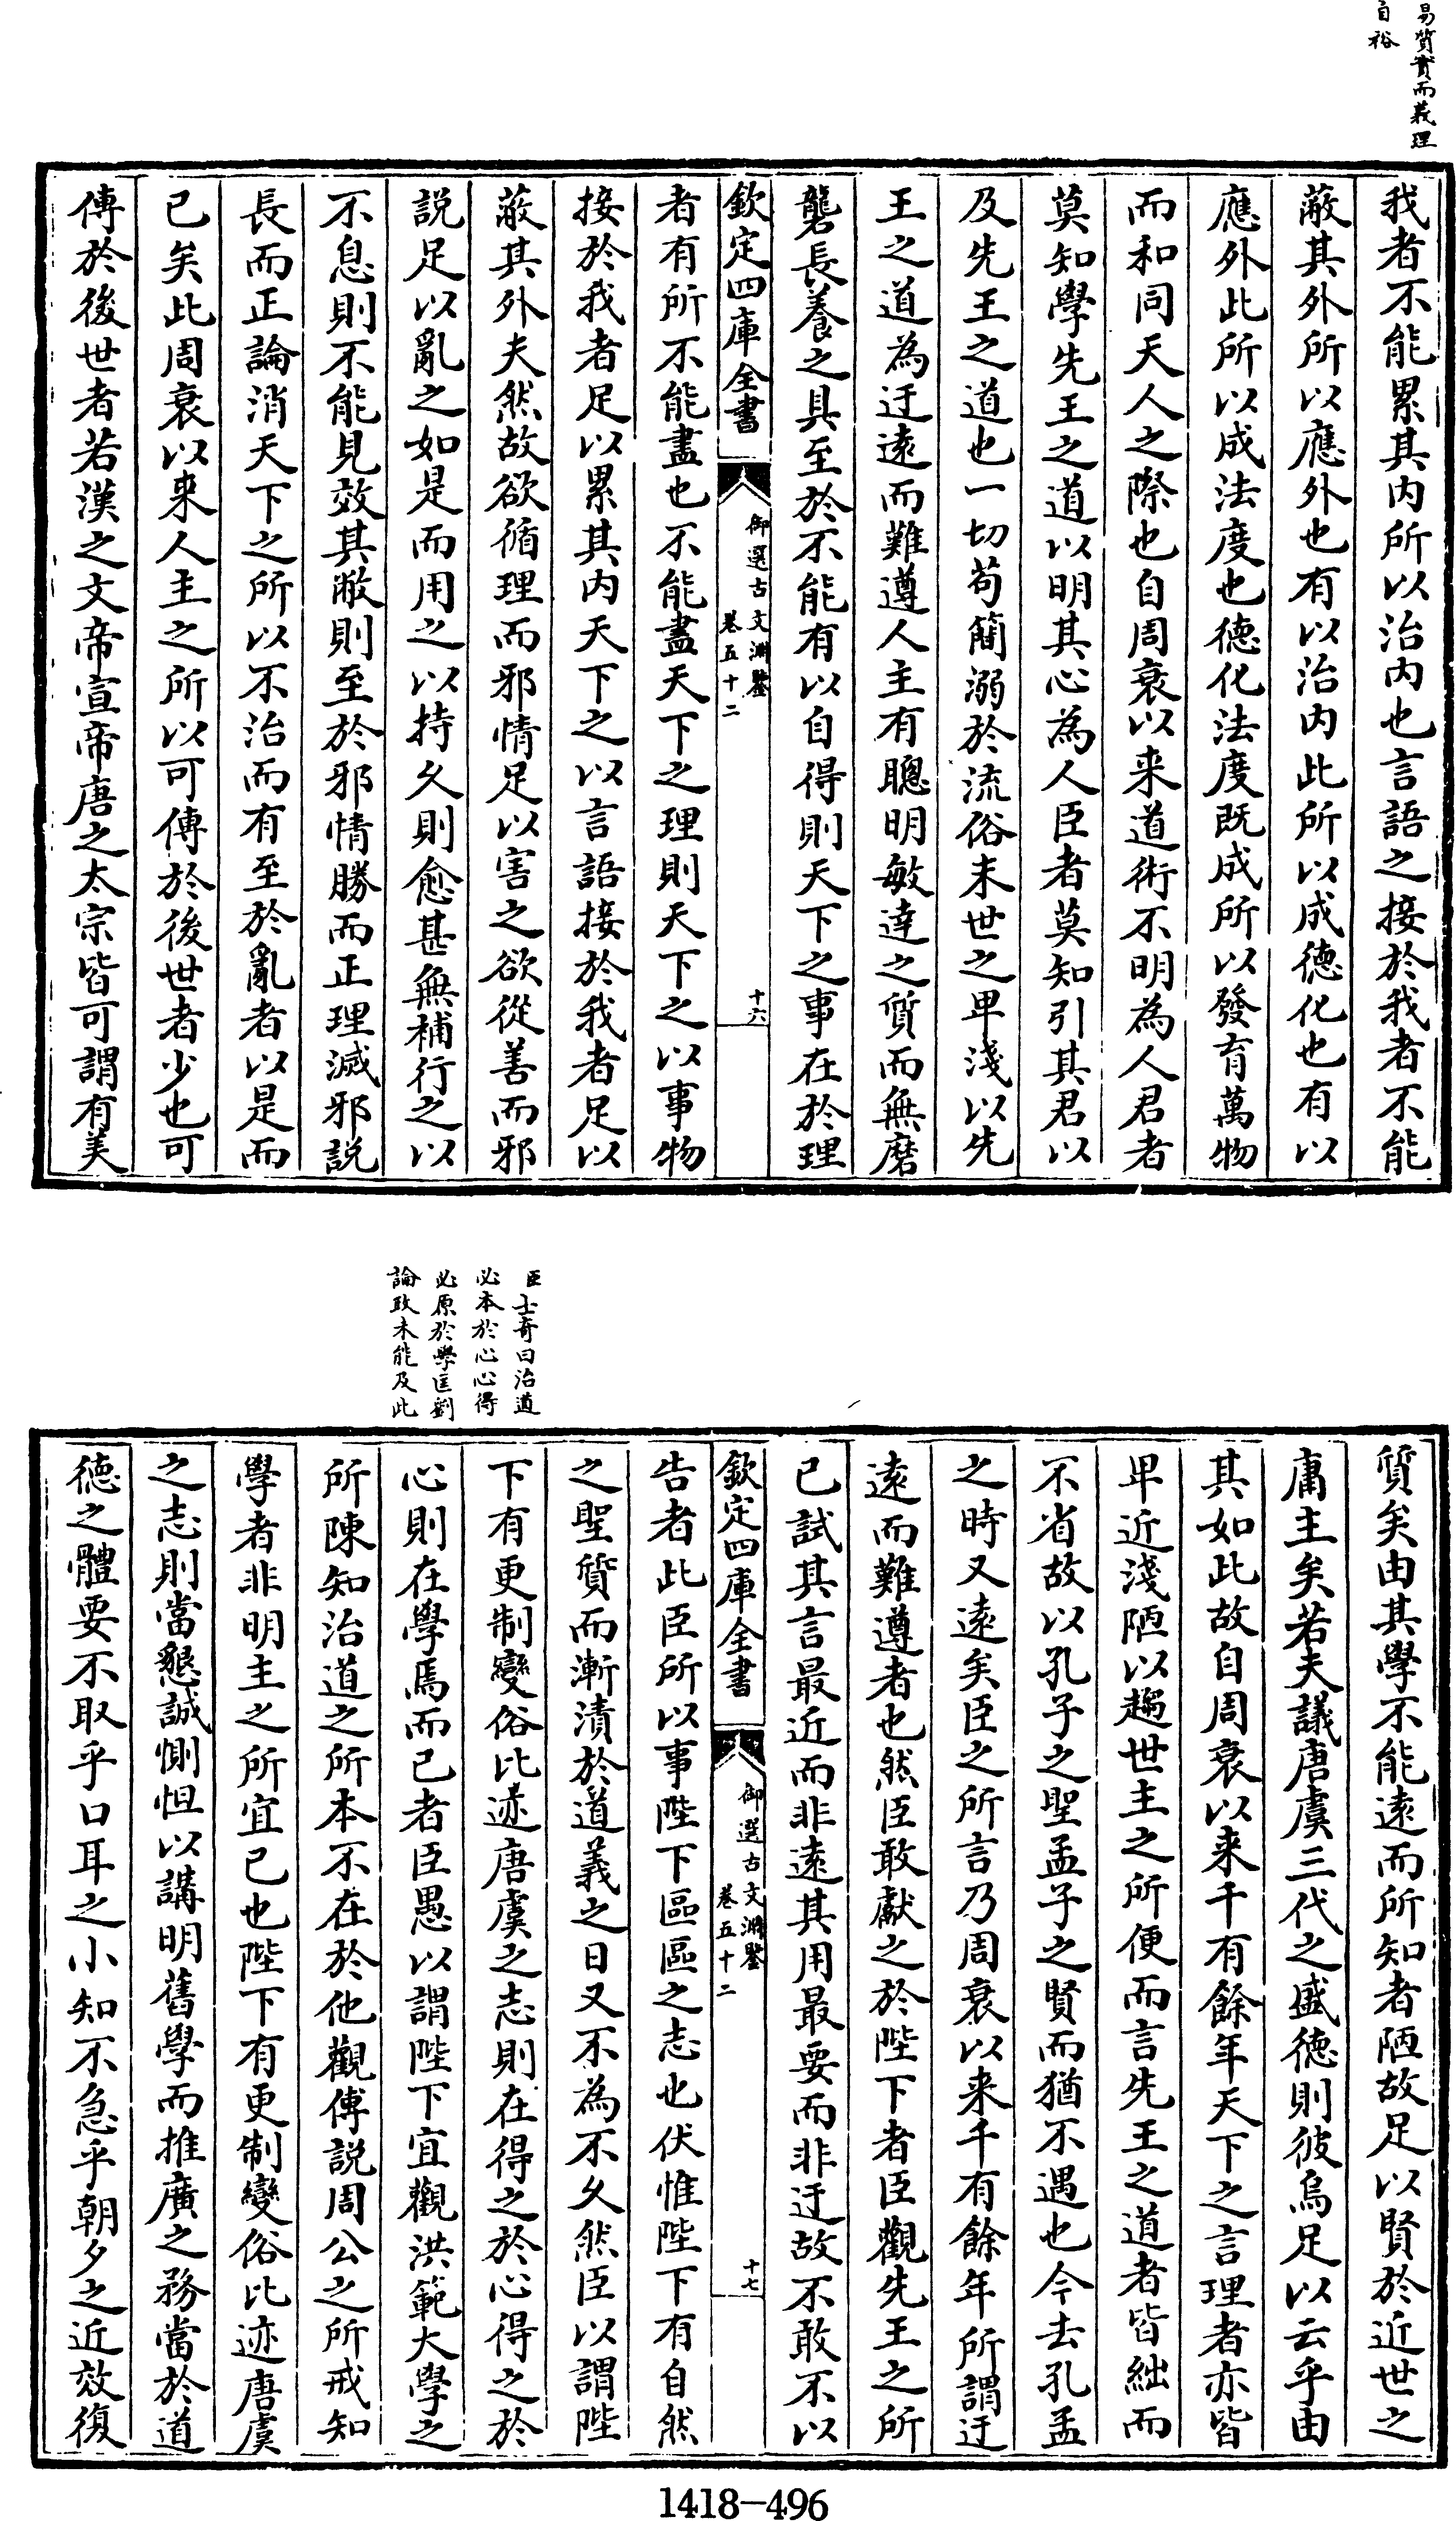 易質實而義理
自裕
我者不能累其内所以治内也言語之接於我者不能
蔽其外所以應外也有以治内此所以成徳化也有以
應外此所以成法度也徳化法度既成所以發育萬物
而和同天人之際也自周衰以来道術不明為人君者
莫知學先王之道以明其心為人臣者莫知引其君以
及先王之道也一切苟簡溺於流俗末世之卑淺以先
王之道為迂逺而難遵人主有聰明敏逹之質而無磨
礲長養之具至於不能有以自得則天下之事在於理
欽定四庫全書
御選古文淵鑒
卷五十二
十六
者有所不能盡也不能盡天下之理則天下之以事物
接於我者足以累其内天下之以言語接於我者足以
蔽其外夫然故欲循理而邪情足以害之欲從善而邪
説足以亂之如是而用之以持久則愈甚無補行之以
不息則不能見效其敝則至於邪情勝而正理滅邪説
長而正論消天下之所以不治而有至於亂者以是而
已矣此周衰以来人主之所以可傳於後世者少也可
傳於後世者若漢之文帝宣帝唐之太宗皆可謂有美
臣士竒曰治道
必本於心心得
必原於學匡劉
論政未能及此
質矣由其學不能逺而所知者陋故足以賢於近世之
庸主矣若夫議唐虞三代之盛徳則彼烏足以云乎由
其如此故自周衰以来千有餘年天下之言理者亦皆
卑近淺陋以趨世主之所便而言先王之道者皆絀而
不省故以孔子之聖孟子之賢而猶不遇也今去孔孟
之時又逺矣臣之所言乃周衰以来千有餘年所謂迂
逺而難遵者也然臣敢獻之於陛下者臣觀先王之所
已試其言最近而非逺其用最要而非迂故不敢不以
欽定四庫全書
御選古文淵鑒
卷五十二
十七
告者此臣所以事陛下區區之志也伏惟陛下有自然
之聖質而漸漬於道義之日又不為不久然臣以謂陛
下有更制變俗比迹唐虞之志則在得之於心得之於
心則在學焉而已者臣愚以謂陛下宜觀洪範大學之
所陳知治道之所本不在於他觀傅説周公之所戒知
學者非明主之所宜已也陛下有更制變俗比迹唐虞
之志則當懇誠惻怛以講明舊學而推廣之務當於道
徳之體要不取乎口耳之小知不急乎朝夕之近效復
1418-496